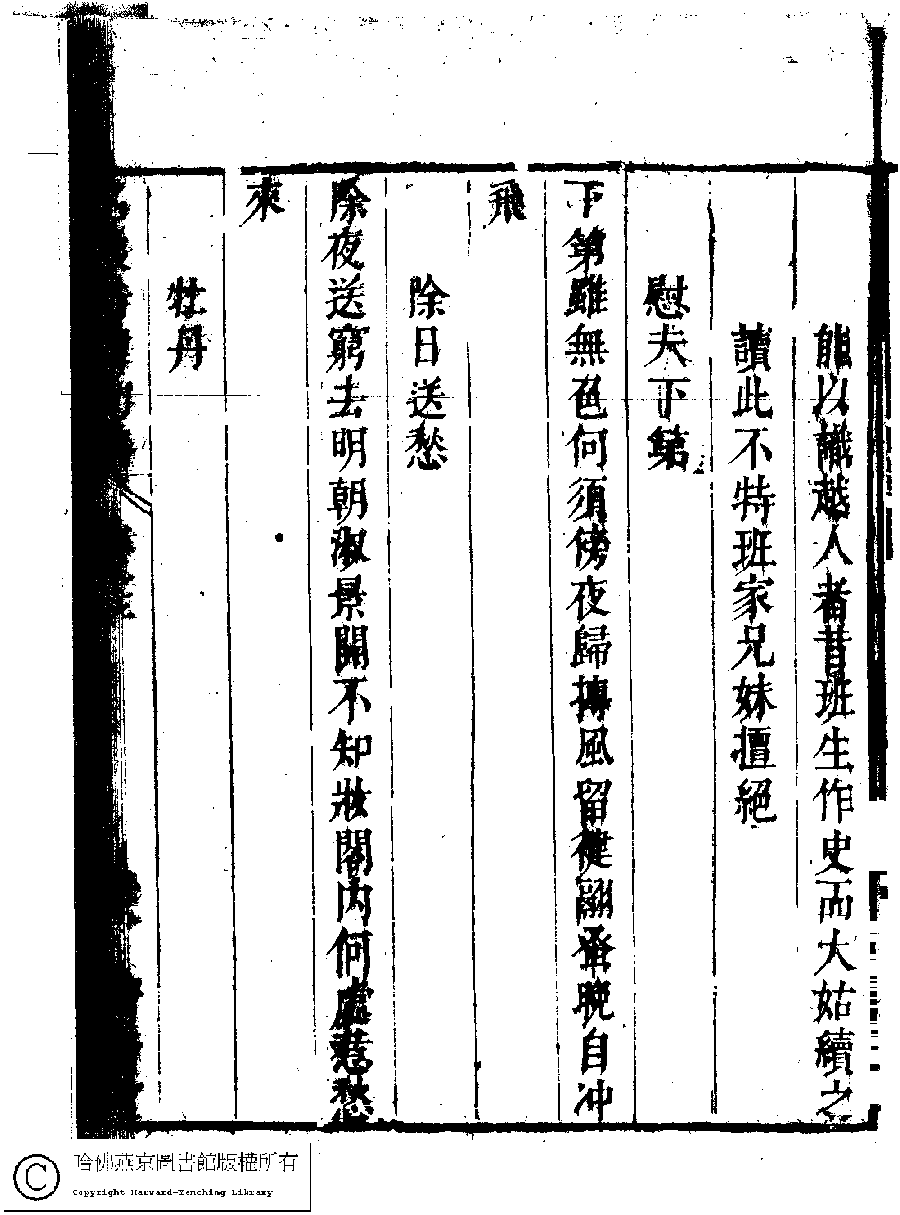 能以識越人者昔班生作史而大姑續之
讀此不特班家兄妹擅絕
慰夫下第
下第雖無色何須傍夜歸摶風留健翮蚤晚自冲
飛
除日送愁
除夜送窮去明朝淑景開不知妝閣內何處惹愁
來
牡丹
哈佛燕京圖書館版權所有
Copyright Harvard-Yenching Library